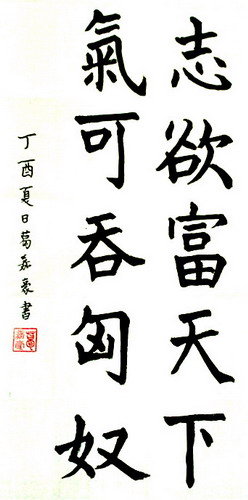 志欲富天下
氣可吞匈奴
丁酉夏日葛嘉豪書